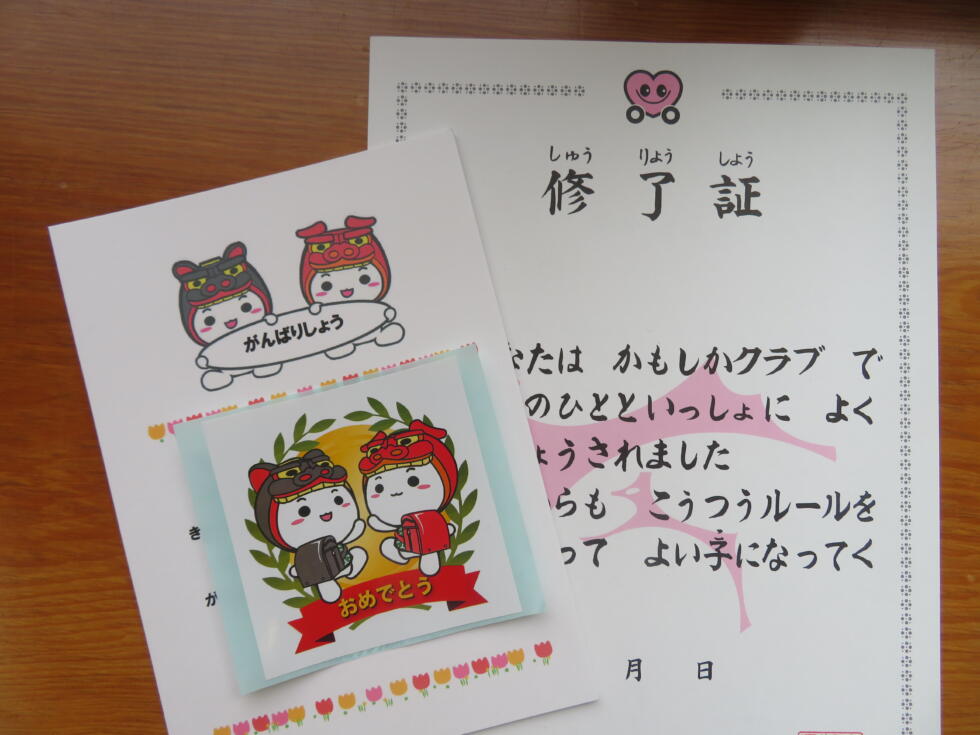 がんばりしょう
き
が
おめでとう
しゅう りょう しょう
修了証
なたは かもしかクラブ で
のひとといっしょに よく
ょうされました
らも こうつうルールを
って よい子になってく
月 日